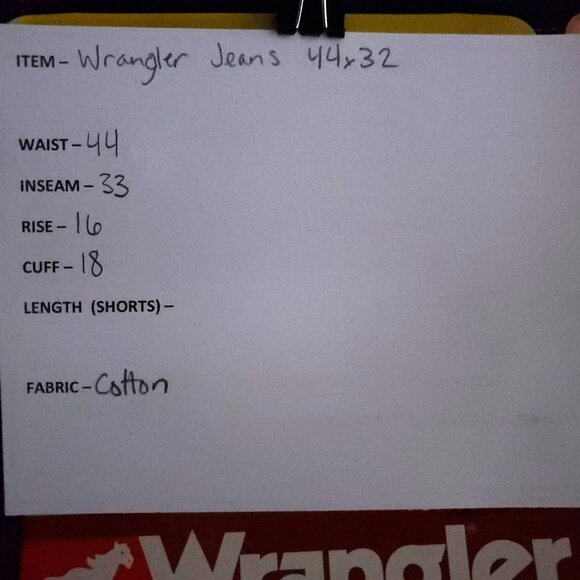 ITEM – Wrangler Jeans 44x32
WAIST – 44
INSEAM – 33
RISE – 16
CUFF – 18
LENGTH (SHORTS) –
FABRIC – Cotton
Wrangler®